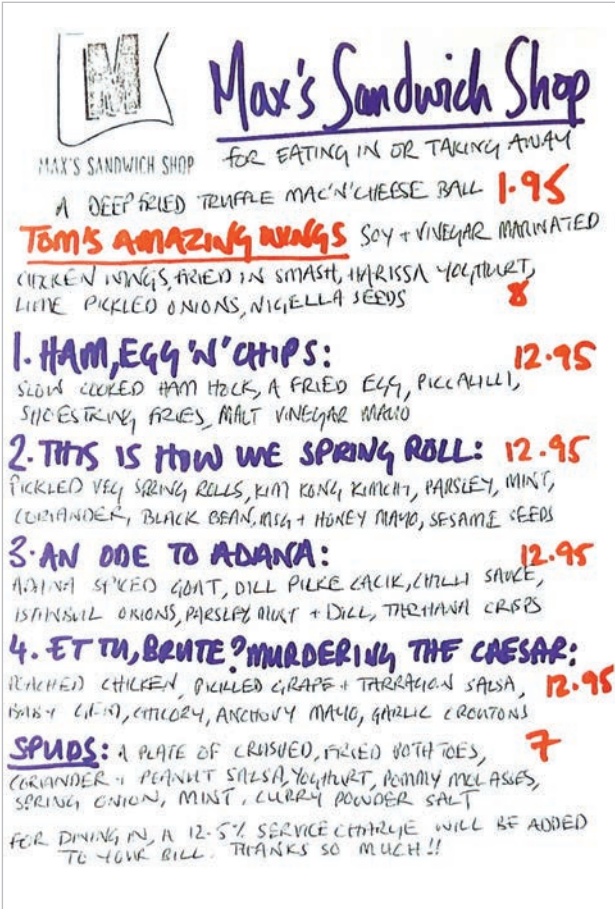 M
MAX'S SANDWICH SHOP
Max's Sandwich Shop
FOR EATING IN OR TAKING AWAY
A DEEP FRIED TRUFFLE MAC'N'CHEESE BALL 1.95
TOM'S AMAZING WINGS SOY + VINEGAR MARINATED
CHICKEN WINGS, FRIED IN SMASH, HARISSA YOGHURT,
LIME PICKLED ONIONS, NIGELLA SEEDS 8
1. HAM, EGG 'N' CHIPS: 12.95
SLOW COOKED HAM HOCK, A FRIED EGG, PICCALILLI,
SHOESTRING FRIES, MALT VINEGAR MAYO
2. THIS IS HOW WE SPRING ROLL: 12.95
PICKLED VEG SPRING ROLLS, KIM KONG KIMCHI, PARSLEY, MINT,
CORIANDER, BLACK BEAN, MSG + HONEY MAYO, SESAME SEEDS
3. AN ODE TO ADANA: 12.95
ADANA SPICED GOAT, DILL PILKE CACIK, CHILLI SAUCE,
ISTANBUL ONIONS, PARSLEY MINT + DILL, TARHANA CRISPS
4. ET TU, BRUTE? MURDERING THE CAESAR:
POACHED CHICKEN, PICKLED GRAPE + TARRAGON SALSA, 12.95
BABY GEM, CHICORY, ANCHOVY MAYO, GARLIC CROUTONS
SPUDS: A PLATE OF CRUSHED, FRIED POTATOES, 7
CORIANDER + PEANUT SALSA, YOGHURT, POMMY MOLASSES,
SPRING ONION, MINT, CURRY POWDER SALT
FOR DINING IN, A 12.5% SERVICE CHARGE WILL BE ADDED
TO YOUR BILL. THANKS SO MUCH!!